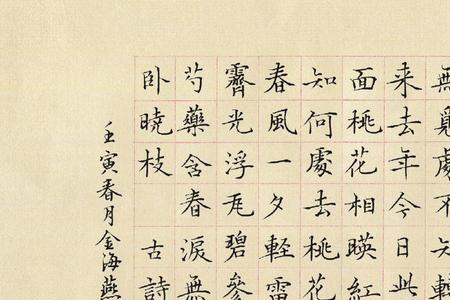 無覓處不知轉
来去年今日此
面桃花相暎紅
知何處去桃花
春風一夕輕雷
霽光浮瓦碧參
芍藥含春淚無
卧曉枝 古詩
壬寅春月金海燕